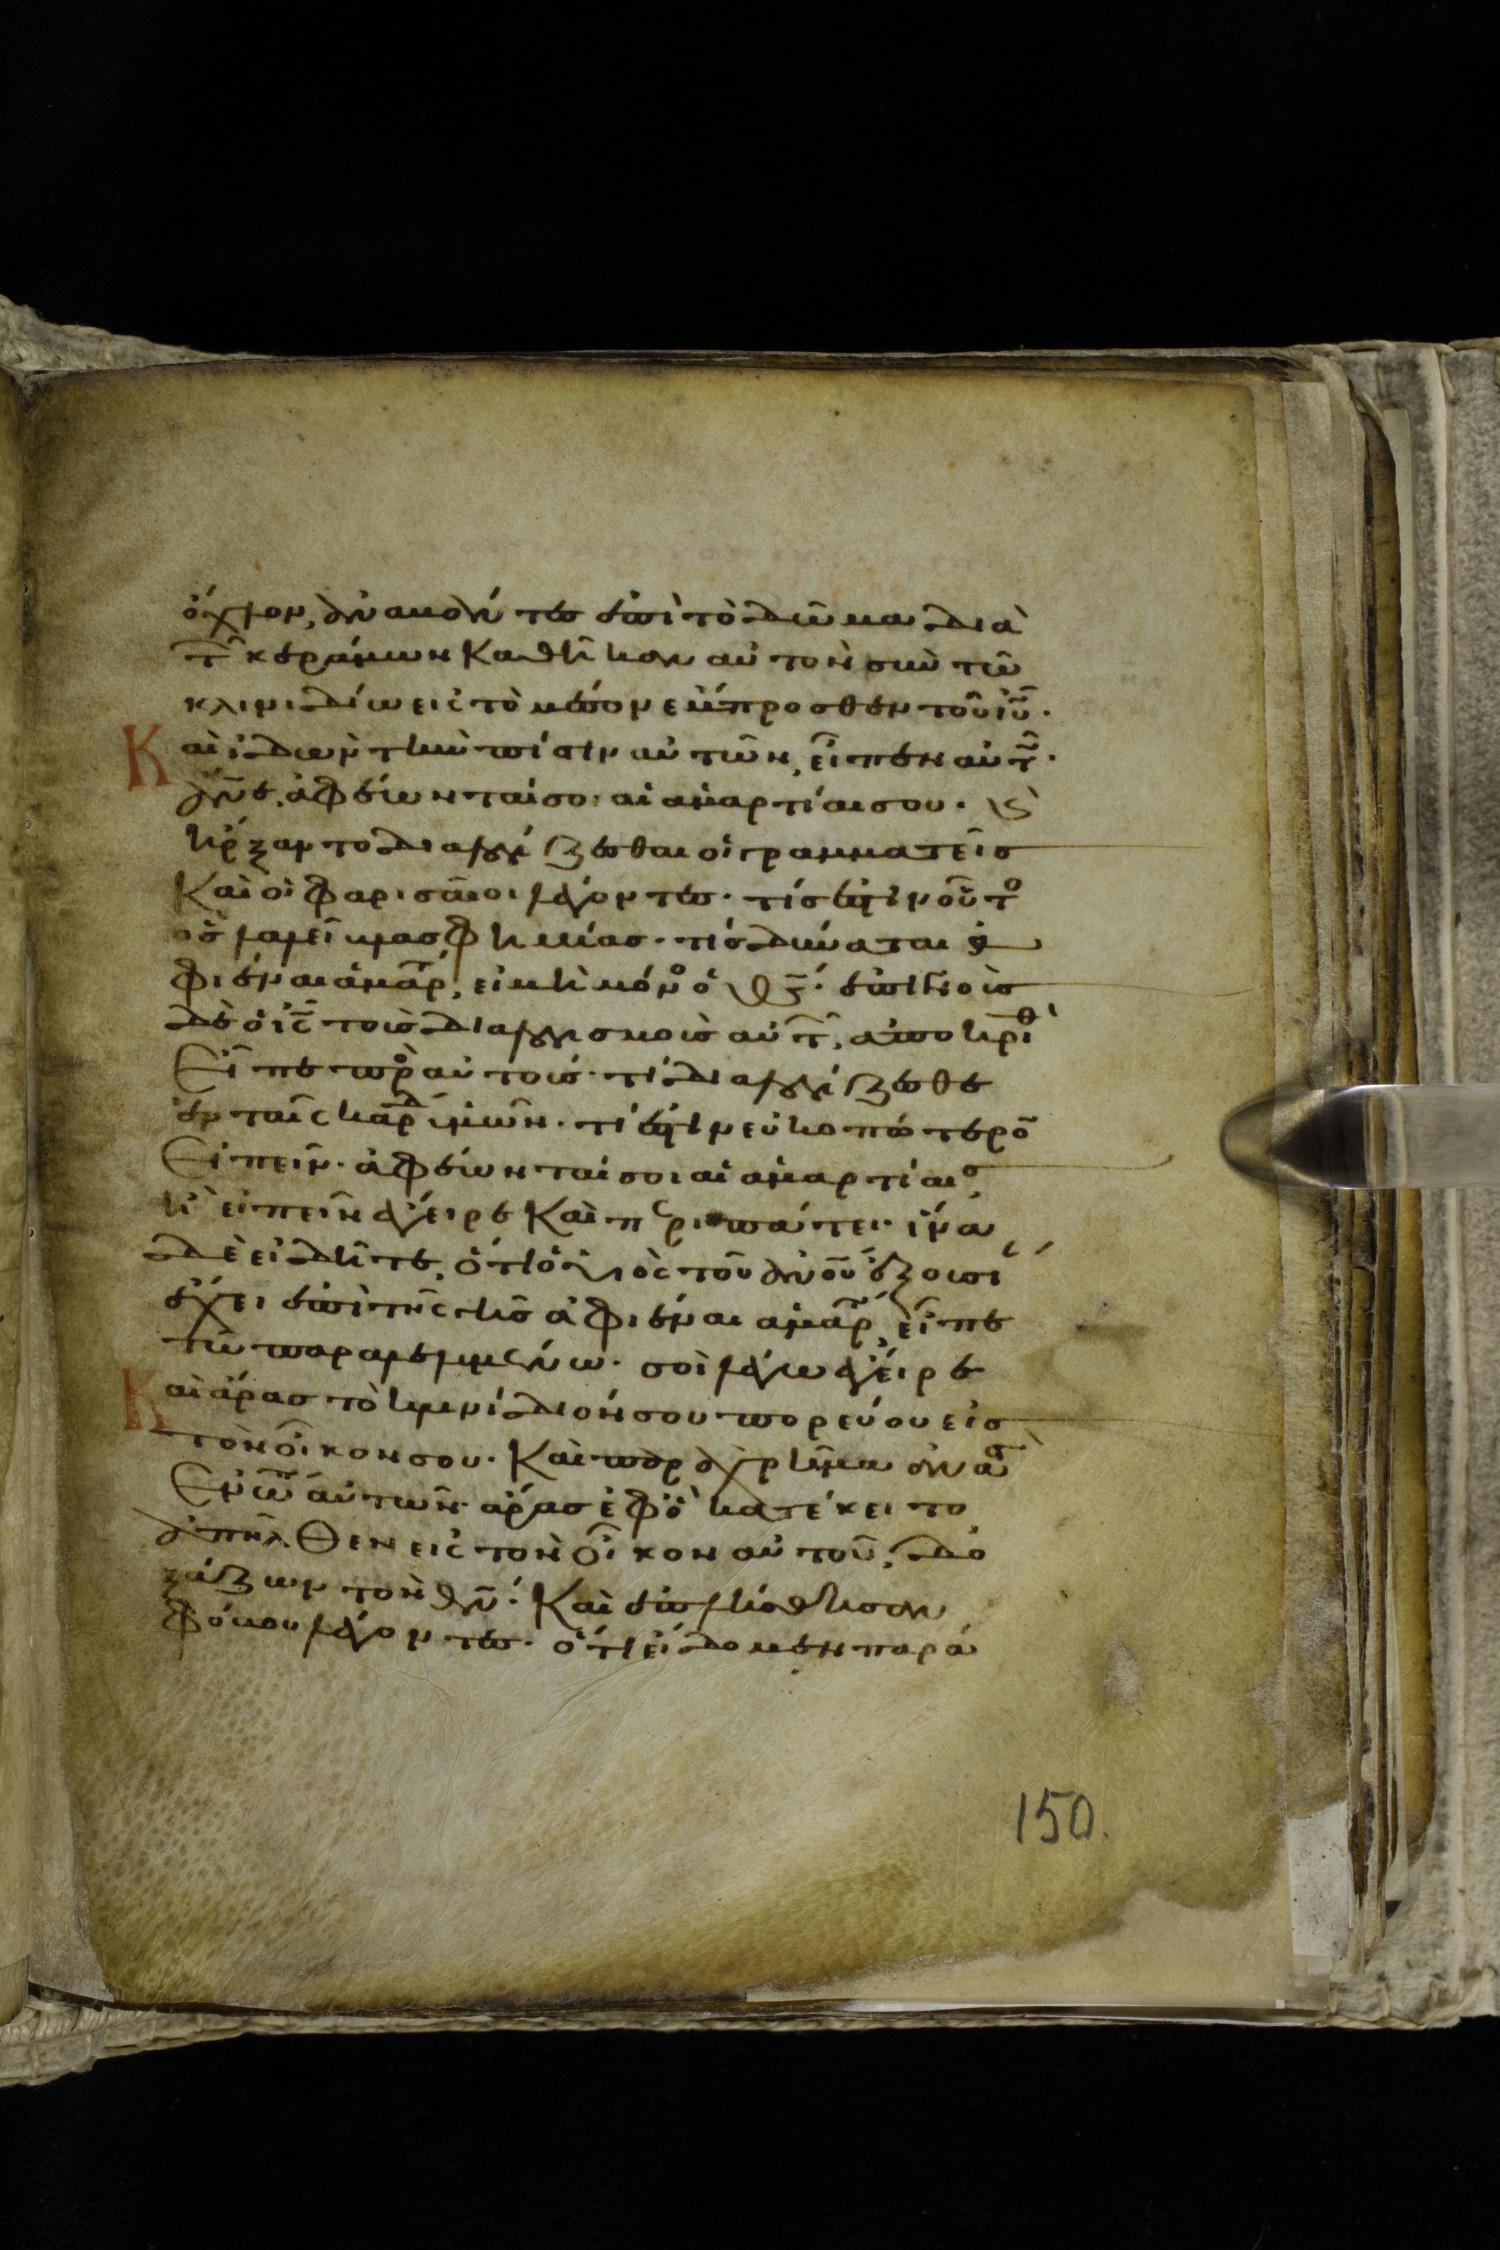 ὄχλον, ἀναβάντες ἐπὶ τὸ δῶμα διὰ
τ̑ κεράμων καθῆκαν αὐτὸν σὺν τῶ
κλινιδίω εἰς τὸ μέσον ἔμπροσθεν τοῦ ἰῦ.
Καὶ ἰδὼν τὴν πίστιν αὐτῶν, εἶπεν αὐτ̑.
ἄνε, ἀφέωνταί σοι αἱ ἁμαρτίαι σου. ϗ
ἤρξαντο διαλογίζεσθαι οἱ γραμματεῖς
Καὶ οἱ φαρισαῖοι λέγοντες. τίς ἐστιν οὗτο
ὃς λαλεῖ βλασφημίας. τίς δύναται ἀ
φιέναι ἁμαρ, εἰ μὴ μόνο ὁ θς. ἐπιγνοὺς
δὲ ὁ ις τοὺς διαλογισμοὺς αὐτ̑, ἀποκριθ
Εἶπε πρὸ αὐτούς. τί διαλογίζεσθε
ἐν ταῖς καρδ ὑμῶν. τί ἐστιν εὐκοπώτερο
Εἰπεῖν. ἀφέωνταί σοι αἱ ἁμαρτίαι σ
ἢ εἰπεῖν ἔγειρε Καὶ περιπάτει. ἵνα
δὲ εἰδῆτε, ὅτι ὁ υἱὸς τοῦ ἀνοῦ ἐξουσί
ἔχει ἐπὶ τῆς γῆς ἀφιέναι ἁμαρ, εἶπε
τῶ παραλελυμένω. σοὶ λέγω ἔγειρε
Καὶ ἄρας τὸ κλινίδιόν σου πορεύου εἰς
τὸν οἶκον σου. Καὶ παραχρῆμα ἀνασ
Ενω αὐτῶν. ἄρας ἐφ ὃ κατέκειτο
ἀπῆλθεν εἰς τὸν οἶκον αὐτοῦ, δο
ξάζων τὸν θν. Καὶ ἐπλήσθησαν
φόβου λέγοντες. ὅτι εἴδομεν παρά
150.